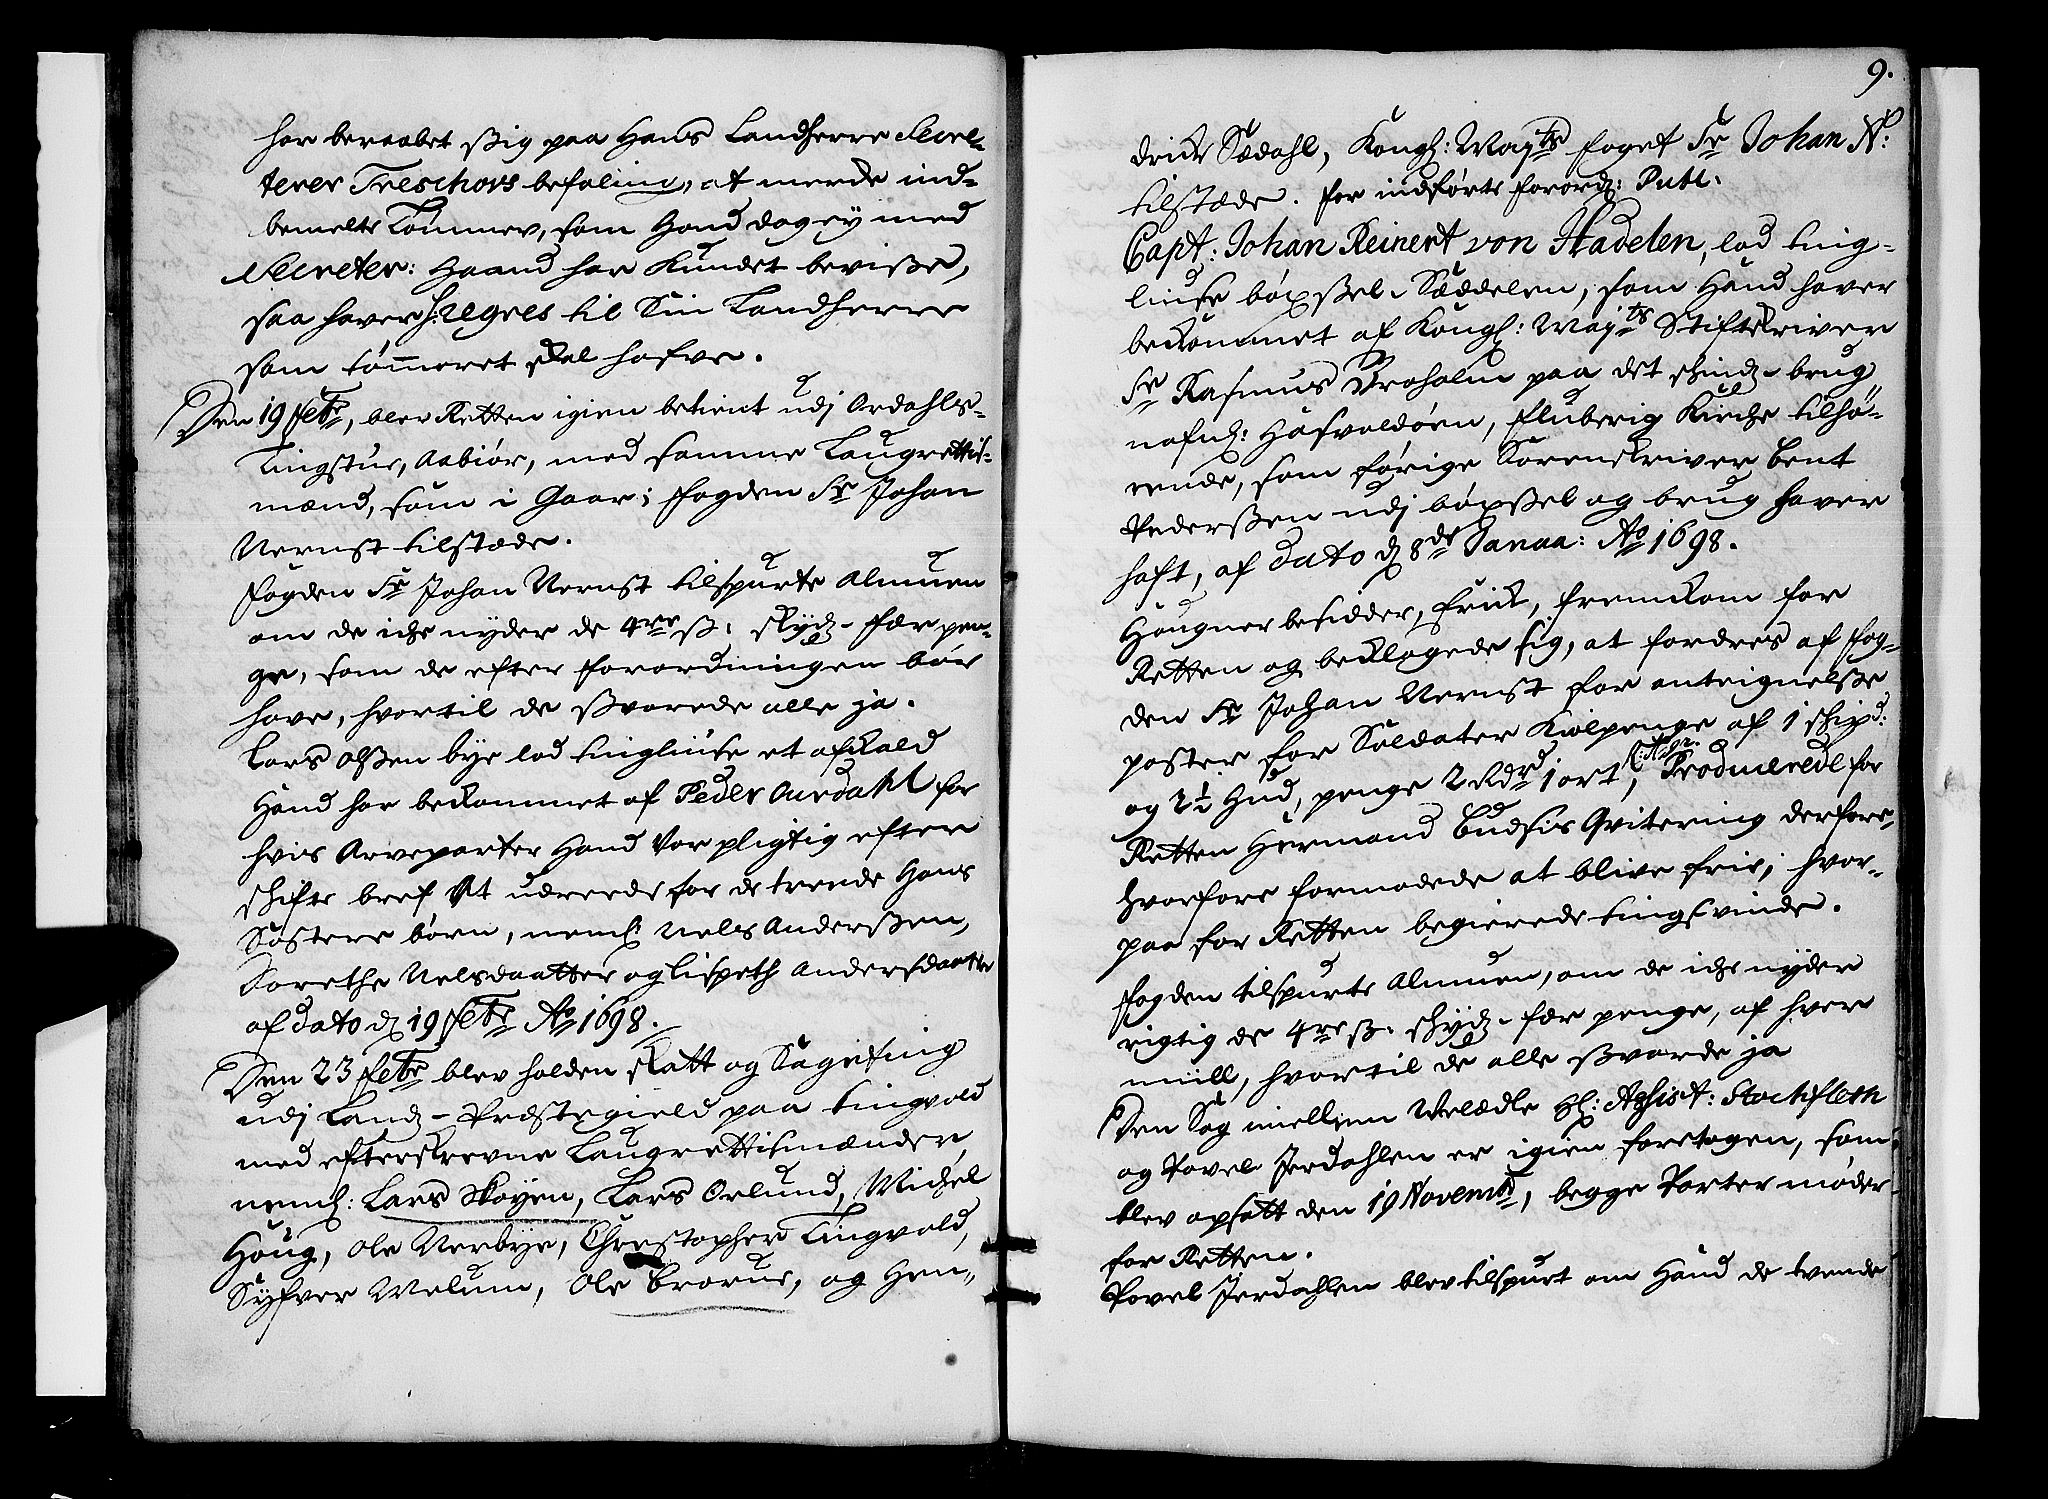 har beraabet ßig paa Hans Landherre Secre-
terer Treschovs befaling, at merke ind-
bemelte Tømmer, som Hand dog ey med
Secreter: Haand har kundet beviße,
saa haver H: Regres til Sin Landherre
som tømmeret skal hafve.
Den 19 Febr, blev Retten igien betient udj Ordahls-
Tingstue, Aabiør, med samme Laugrettis-
mænd, som i Gaar; fogden Sr Johan
Vernst tilstæde.
fogden Sr Johan Vernst tilspurte Almuen
om de iche nyder de 4re ß: skydz-fær pen-
ge, som de efter forordningen bør
have, hvortil de ßvarede alle ja.
Lars Olßen bye lod tingliuse et afkald
Hand har bekommet af Peder Ourdahl for
hvis Arveparter Hand Var pligtig efter
schifte bref At udreede for de trende Hans
Søstere børn, neml: Nels Anderßen,
Dorethe Nelsdaatter og Lispeth Andersdaatter
af dato d 19 Febr Ao 1698.
Den 23 Febr blev holden skatt og Sageting
udj Landz-Præstegield paa Tingvold
med efterskrevne Laugrettismænder,
neml: Lars Skøyen, Lars Orlund, Michel
Houg, Ole Nerbye, Christopher Tingvold,
Syfver Melum, Ole Brorue, og Hen-
9.
drick Sødahl, Kongl: Maytz foget Sr Johan N:
tilstæde. for indførte forord: Publ.
Capt: Johan Reinert von Stadelen, lod ting-
liuse bøxßel-Søddelen, som Hand haver
bekommet af Kongl: Maytz Stiftskriver
Sr Rasmus Broholm paa det schindz-brug
nafnl: Hasvoldøen, fluberig Kirche tilhø-
rende, som førige Sorenskriver Bent
Pederßen udj bøxßel og brug haver
haft, af dato d 8de Janua: Ao 1698.
Hougner besidder, Erick, fremkom for
Retten og beklagede sig, at fordres af fog-
den Sr Johan Vernst for anteignelße
poster for Soldater Kiolpenge af 1 Schipd:
og 2½ Hud, penge 2 Rdr 1 ort, Producerede for
Retten Hermand Budsis Qvitering derfore,
hvorfore formodede at blive frie, hvor-
paa for Retten begierede tingsvinde.
fogden tilspurte Almuen, om de iche nyder
rigtig de 4re ß: schydz-fær penge, af hver
miill, hvortil de alle ßvarde ja
Den Sag imellem Velædle Hl: Assist: Stochfleth
og Povel Jerdahlen er igien foretagen, som
blev opsatt den 19 Novemb, begge Parter møder
for Retten.
Povel Jerdahlen blev tilspurt om Hand de tvende